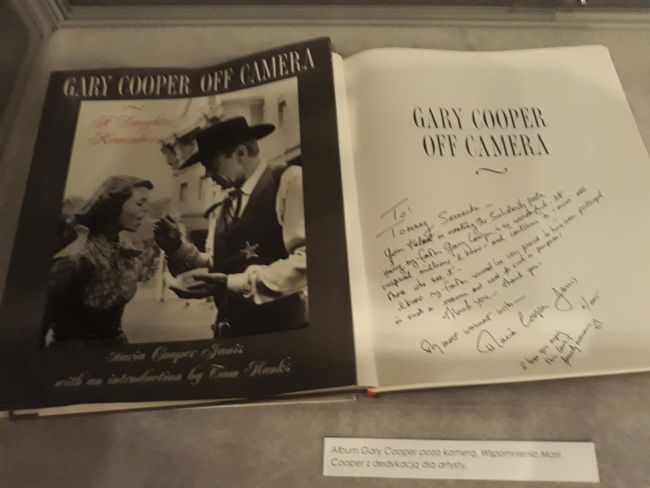 GARY COOPER OFF CAMERA
A Daughter
Remembers
Maria Cooper Janis
with an introduction by Tom Hanks
GARY COOPER
OFF CAMERA
To:
Tomasz Sarnecki -
Your talent in creating the Solidarity poster
using my father Gary Cooper is so wonderful. It
inspired millions I know and continues to move all
those who see it.
I know my father would be very proud to have been portrayed
in such a manner and used for such a purpose!
Thank you - Thank you -
My most warmest wishes -
Maria Cooper Janis
I hope you enjoy
this book of
family memories
Album Gary Cooper poza kamerą. Wspomnienia Marii
Cooper z dedykacją dla artysty.